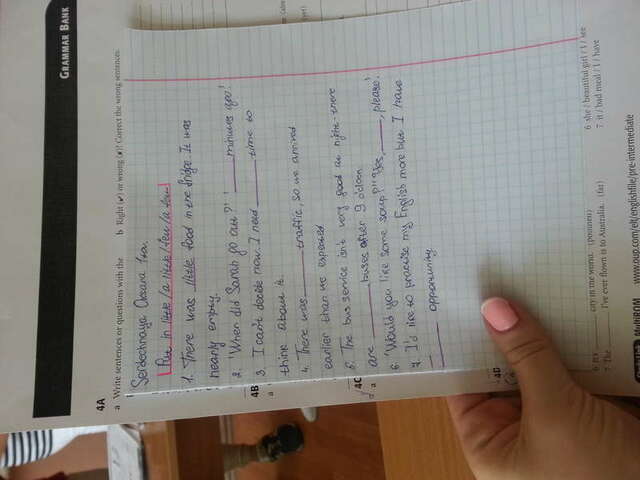 GRAMMAR BANK
4A
a Write sentences or questions with the
b Right (✔) or wrong (✘)? Correct the wrong sentences.
Serdechnaya Oksana
Put in little/a little/few/a few
1. There was little food in the fridge. It was
nearly empty.
2. 'When did Sarah go out?' '______minutes ago.'
3. I can't decide now. I need ______ time to
think about it.
4. There was ______ traffic, so we arrived
earlier than we expected
5. The bus service isn't very good at night-there
are ______ buses after 9 o'clock
6. 'Would you like some soup?' 'Yes, ____, please.'
7. I'd like to practise my English more but I have
______ opportunity.
4B
a
4C
a
4D
6 It's ______ city in the world. (polluted)
7 The ______ I've ever flown to is Australia. (far)
6 she / beautiful girl / I / see
7 it / bad meal / I / have
MultiROM www.oup.com/elt/englishfile/pre-intermediate